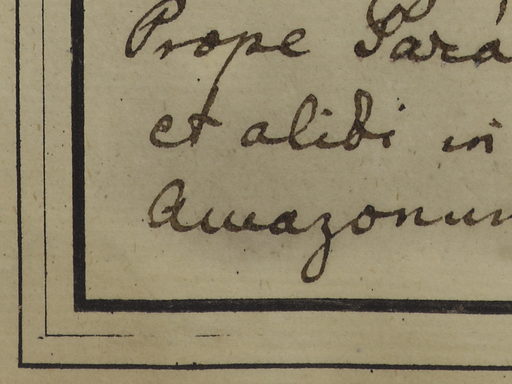 Prope Pará
et alibi in
Amazonum